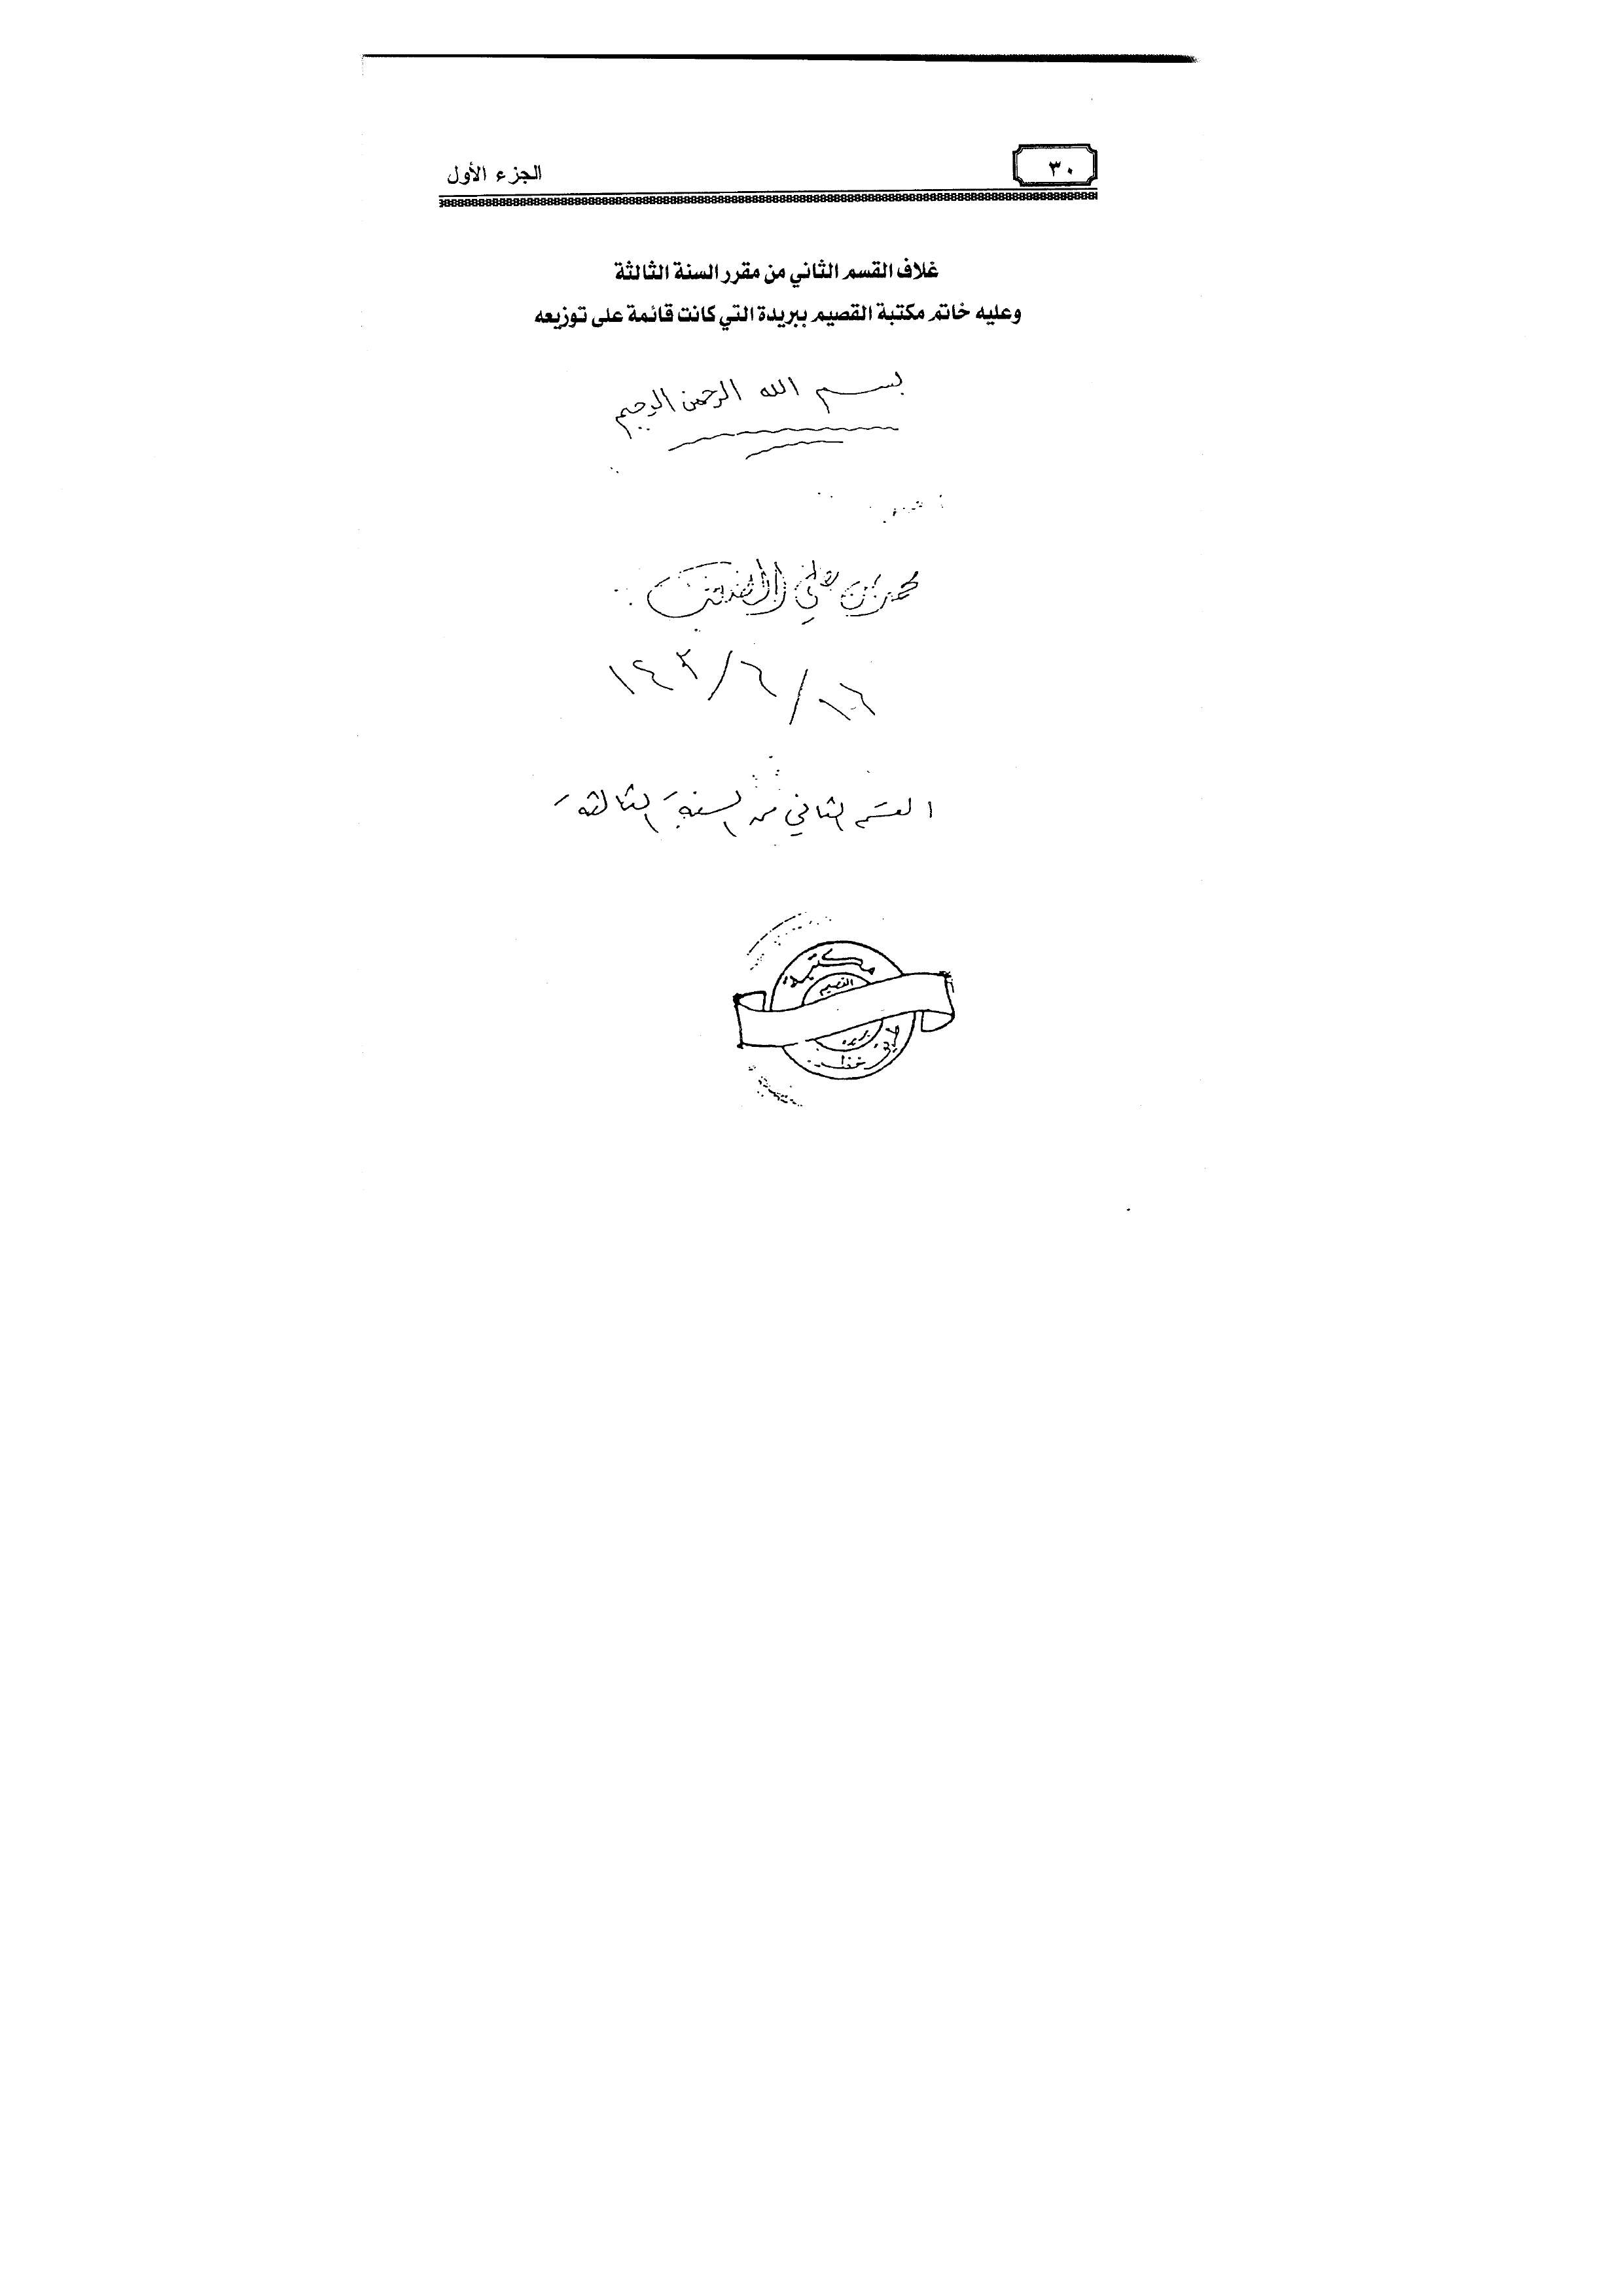 ٣٠
الجزء الأول
غلاف القسم الثاني من مقرر السنة الثالثة
وعليه خاتم مكتبة القصيم ببريدة التي كانت قائمة على توزيعه
بسم الله الرحمن الرحيم
محمد بن علي
١٤٠٢/٦/١٦
القسم الثاني من السنة الثالثة
مكتبة
القصيم
بريده